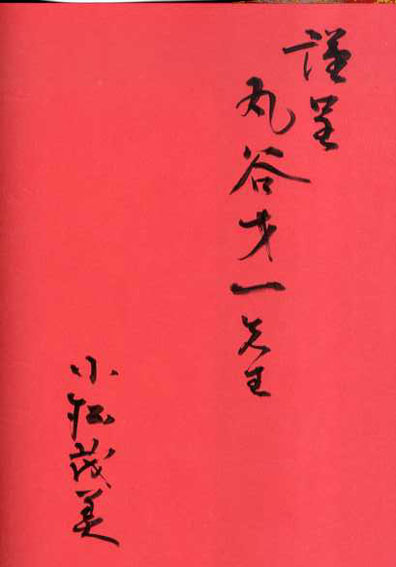 謹呈
丸谷才一先生
小松茂美